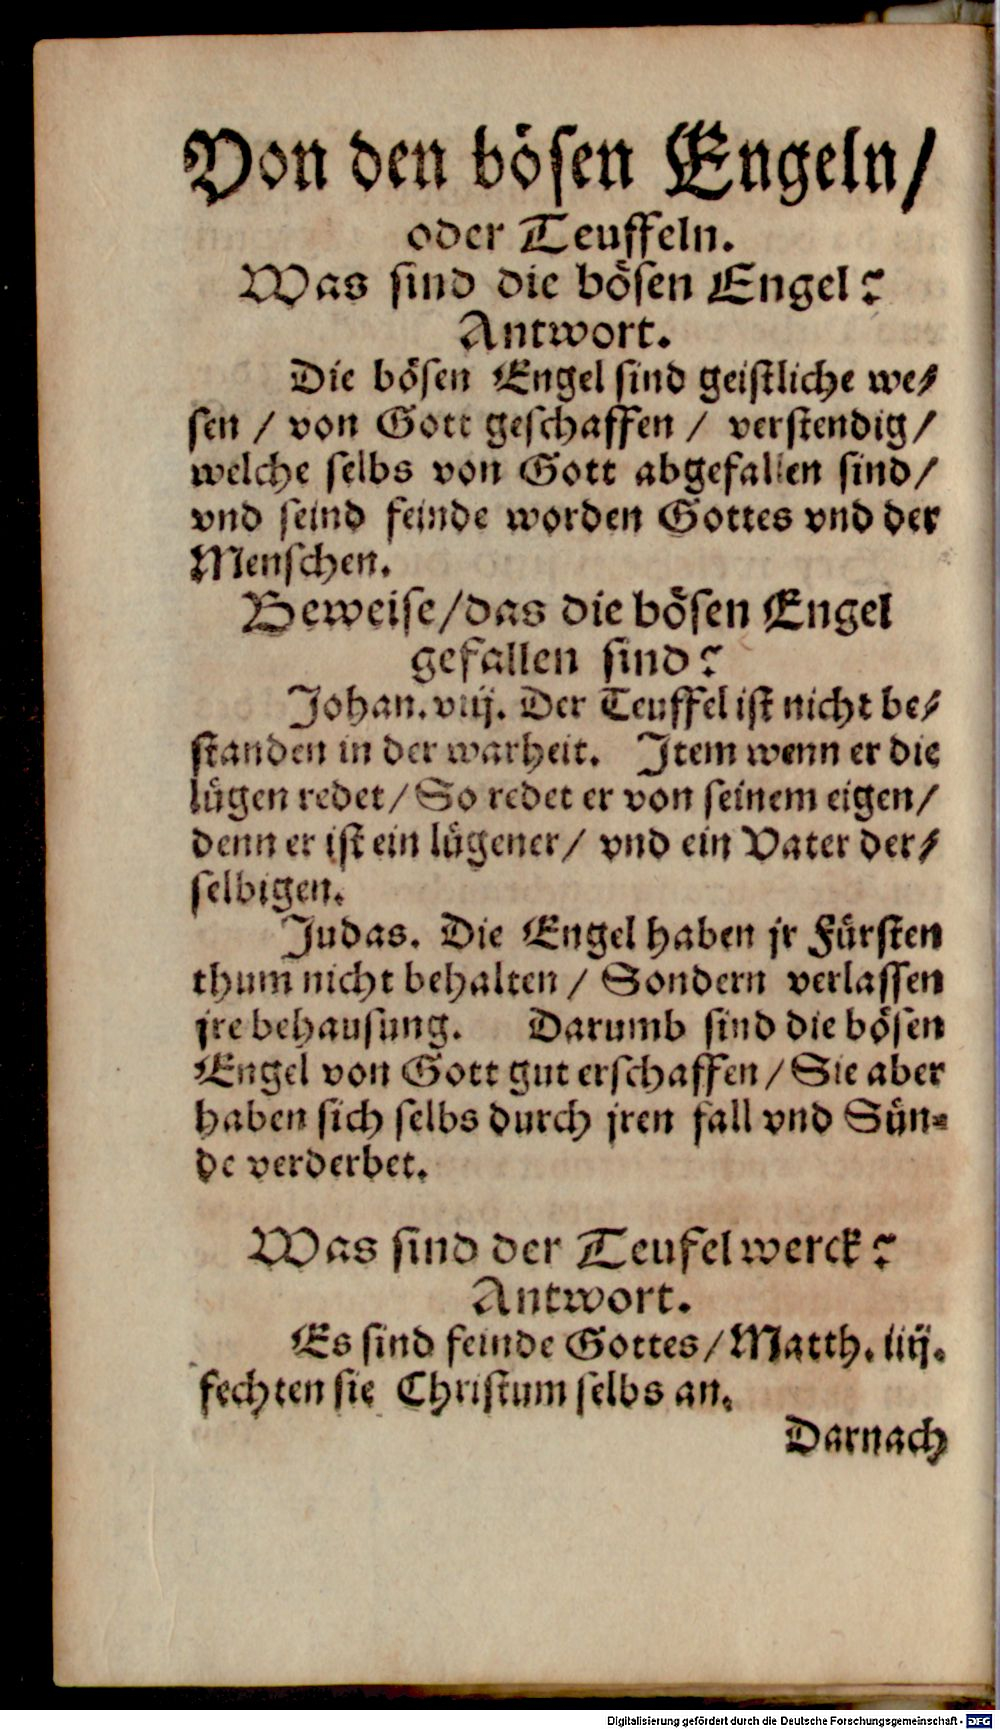 Von den bösen Engeln/
oder Teuffeln.
Was sind die bösen Engel?
Antwort.
Die bösen Engel sind geistliche we⸗
sen / von Gott geschaffen / verstendig/
welche selbs von Gott abgefallen sind/
vnd seind feinde worden Gottes vnd der
Menschen.
Beweise/das die bösen Engel
gefallen sind?
Johan. viij. Der Teuffel ist nicht be⸗
standen in der warheit. Item wenn er die
lügen redet/So redet er von seinem eigen/
denn er ist ein lügener/ vnd ein Vater der⸗
selbigen.
Judas. Die Engel haben jr Fürsten
thum nicht behalten / Sondern verlassen
jre behausung. Darumb sind die bösen
Engel von Gott gut erschaffen/Sie aber
haben sich selbs durch jren fall vnd Sün⸗
de verderbet.
Was sind der Teufel werck?
Antwort.
Es sind feinde Gottes/Matth. iiij.
fechten sie Christum selbs an.
Darnach
Digitalisierung gefördert durch die Deutsche Forschungsgemeinschaft - DFG